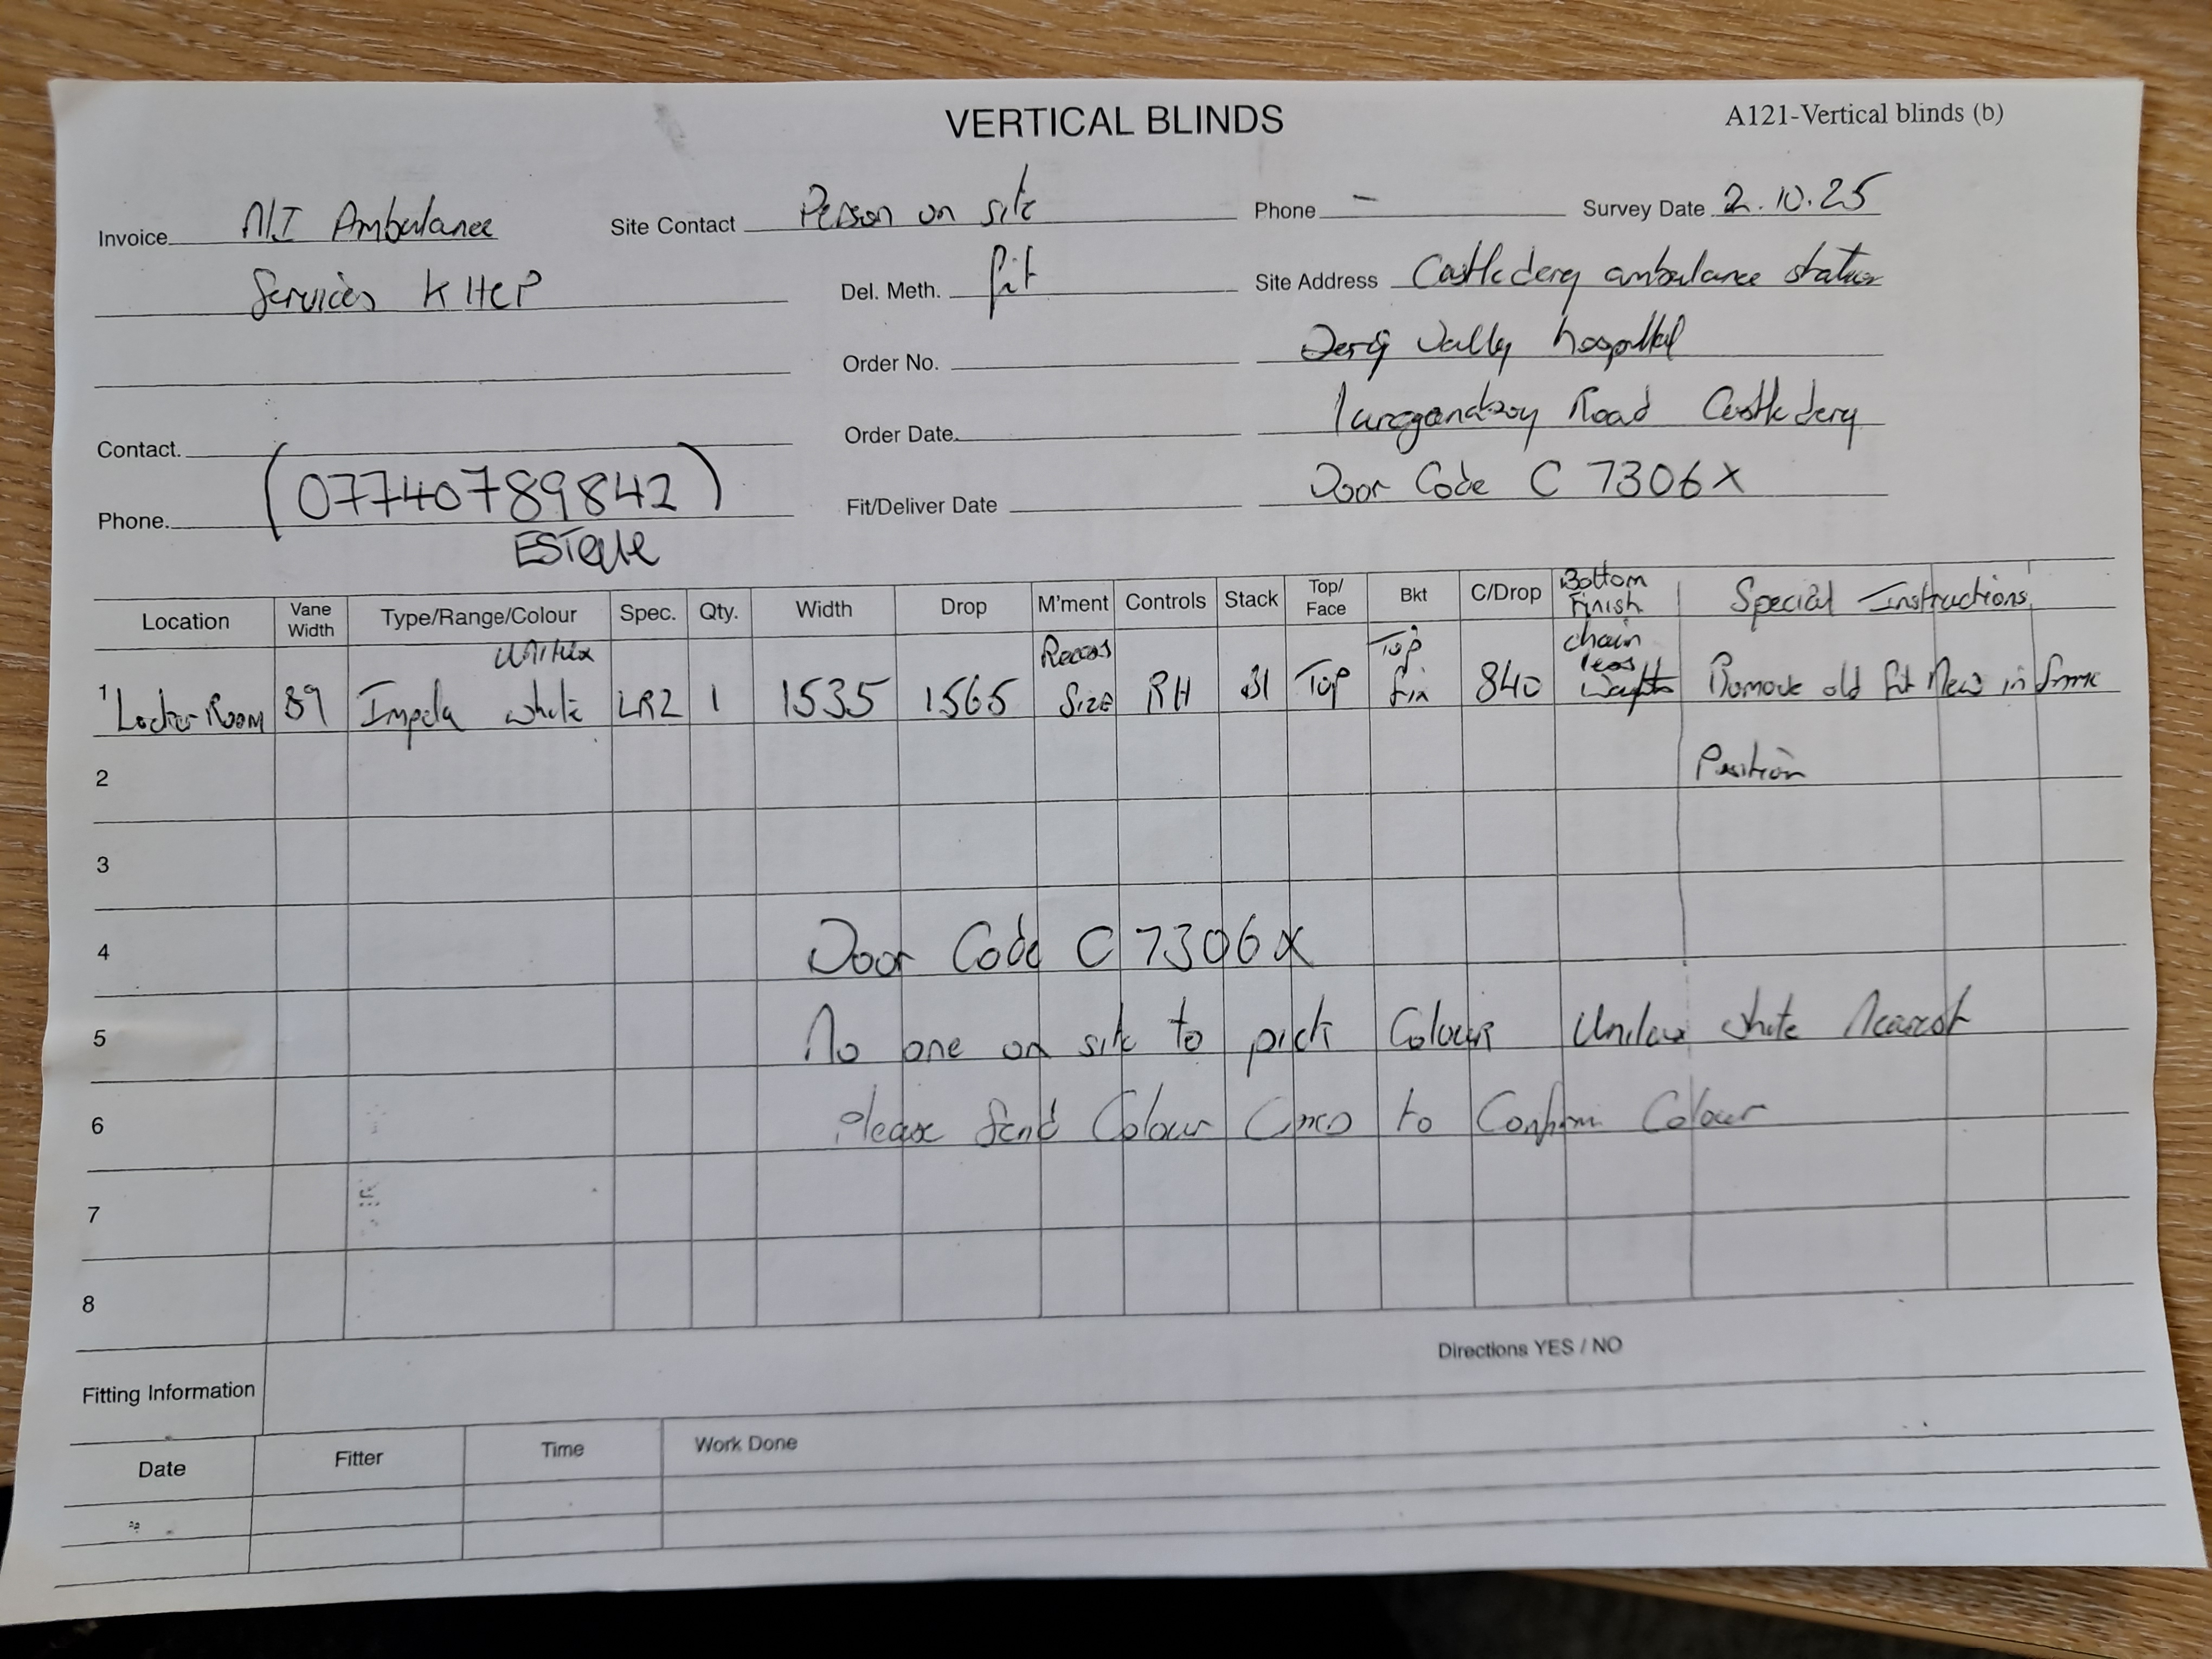 VERTICAL BLINDS
A121-Vertical blinds (b)
Invoice N.I Ambulance Site Contact Person on site Phone - Survey Date 2.10.25
Services KHCP Del. Meth. fit Site Address Castlederg ambulance station
Order No. Derg Vally hospital
Contact. Order Date. Road Castlederg
Phone. (07740789842) Fit/Deliver Date Door Code C 7306X
Location Vane Width Type/Range/Colour Spec. Qty. Width Drop M'ment Controls Stack Top/Face Bkt C/Drop Bottom Finish Special Instructions
1 Locker Room 89 Impela white Unilux LR2 1 1535 1565 Recess Size RH Top Top fix 840 chain less Weights Remove old fit New in same
2 Position
3
4 Door Code C 7306X
5 No one on site to pick Colour Unilux white Nearest
6 Please Send Colour to Confirm Colour
7
8
Directions YES / NO
Fitting Information
Date Fitter Time Work Done